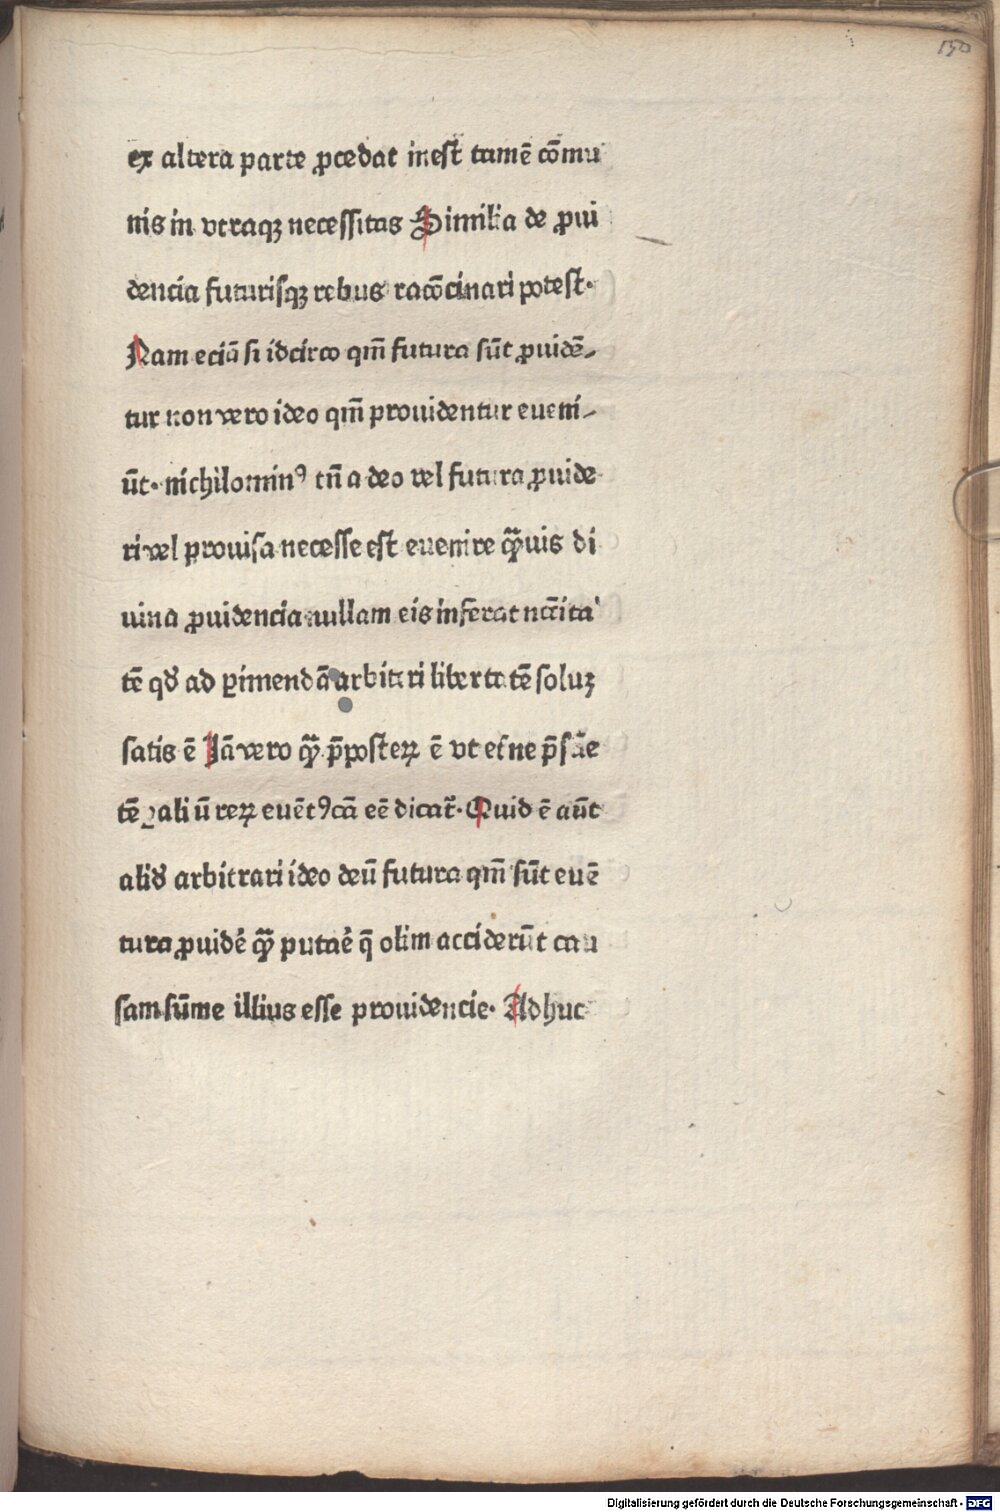 150
ex altera parte ꝓcedat inest tamē cōmu
nis in vtraqꝫ necessitas Similia de ꝓui
dencia futurisqꝫ rebus racōcinari potest·
Nam eciā si idcirco qm̄ futura sūt ꝓuidē-
tur non vero ideo qm̄ prouidentur eueni-
ūt· nichilominꝰ tn̄ a deo vel futura ꝓuide
ri vel prouisa necesse est euenire qͣ̄uis di
uina ꝓuidencia nullam eis inferat nc̄cita
tē qd' ad ꝑimendā arbitri libertatē soluꝫ
satis ē Jā vero qͣ̄ p̄posterꝝ ē vt et̉ne p̄sciē
tē ꝑaliū rerꝝ euēt ꝯcā eē dicat̉· Quid ē aūt
alid' arbitrari ideo deū futura qm̄ sūt euē
tura ꝓuidē qͣ̄ putaē q̄ olim acciderūt cau
sam sūme illius esse prouidencie· Adhuc
Digitalisierung gefördert durch die Deutsche Forschungsgemeinschaft - DFG